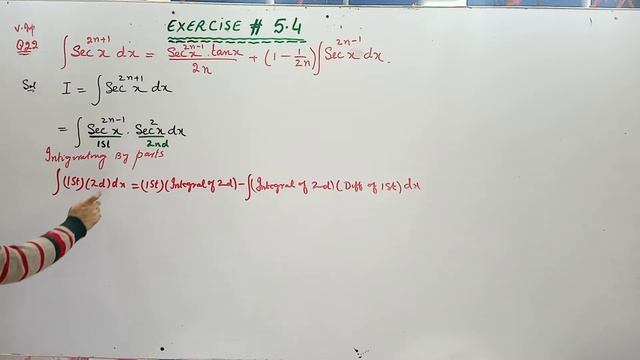 EXERCISE # 5.4
V.Ø4
Q22 ∫ Sec^{2n+1} x dx = Sec^{2n-1} x . tan x / 2n + (1 - 1/2n) ∫ Sec^{2n-1} x dx.
Sol I = ∫ Sec^{2n+1} x dx
= ∫ Sec^{2n-1} x . Sec^2 x dx
1st 2nd
Intigrating By parts
∫ (1St) (2d) dx = (1St) (Integral of 2d) - ∫ (Integral of 2d) (Diff of 1St) dx